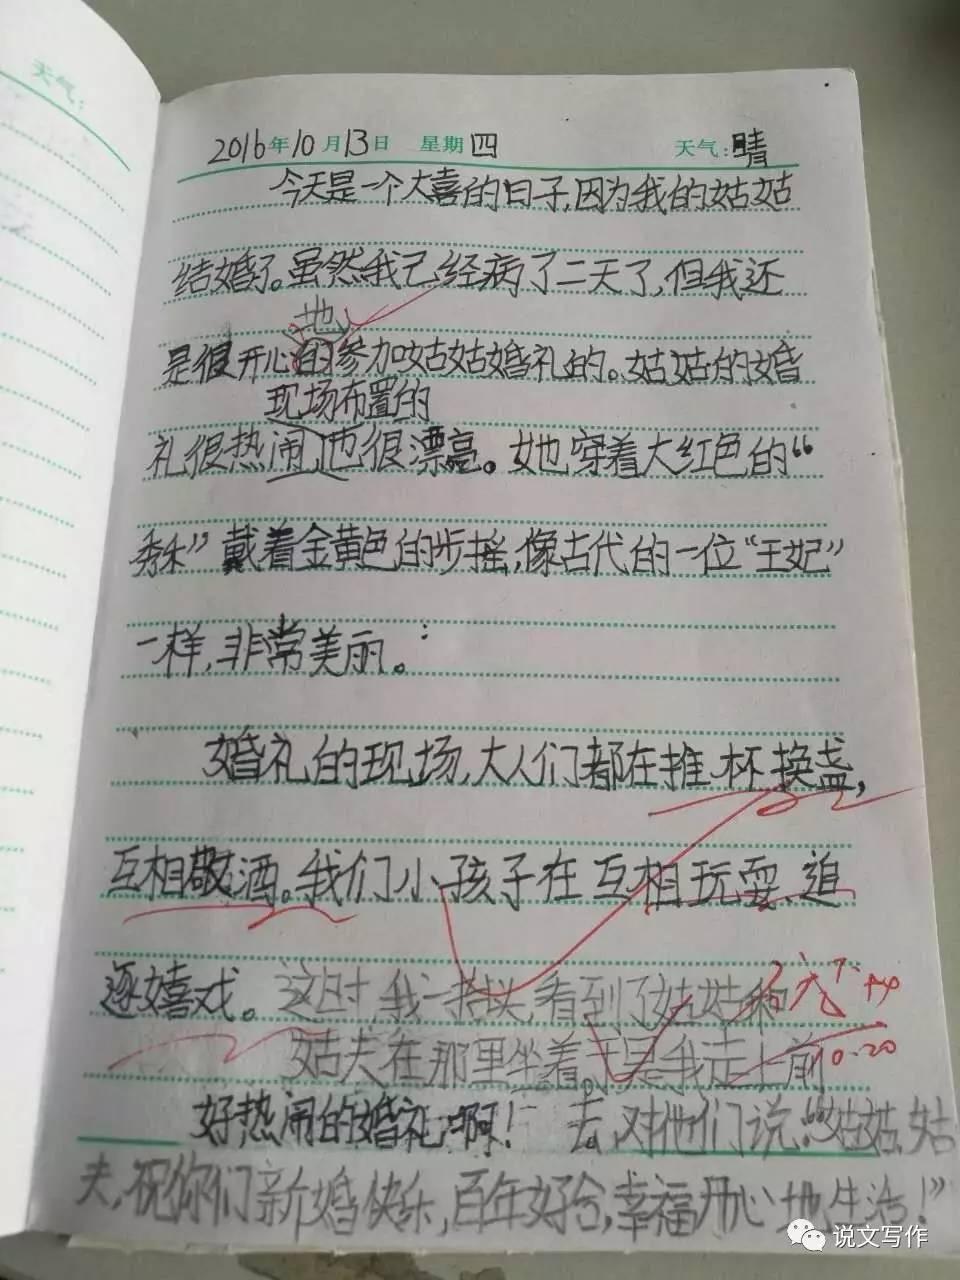 天气:
2016年10月13日 星期四 天气:晴
今天是一个大喜的日子,因为我的姑姑
结婚了。虽然我已经病了二天了,但我还
地
是很开心的参加姑姑婚礼的。姑姑的婚
现场布置的
礼很热闹,也很漂亮。她穿着大红色的“
秀禾”戴着金黄色的步摇,像古代的一位“王妃”
一样,非常美丽。
婚礼的现场,大人们都在推杯换盏,
互相敬酒。我们小孩子在互相玩耍、追
逐嬉戏。这时,我一抬头,看到了姑姑和
姑夫在那里坐着,于是我走上前
10.20
好热闹的婚礼啊!
去,对他们说:“姑姑、姑
夫,祝你们新婚快乐,百年好合,幸福开心地生活!”
说文写作